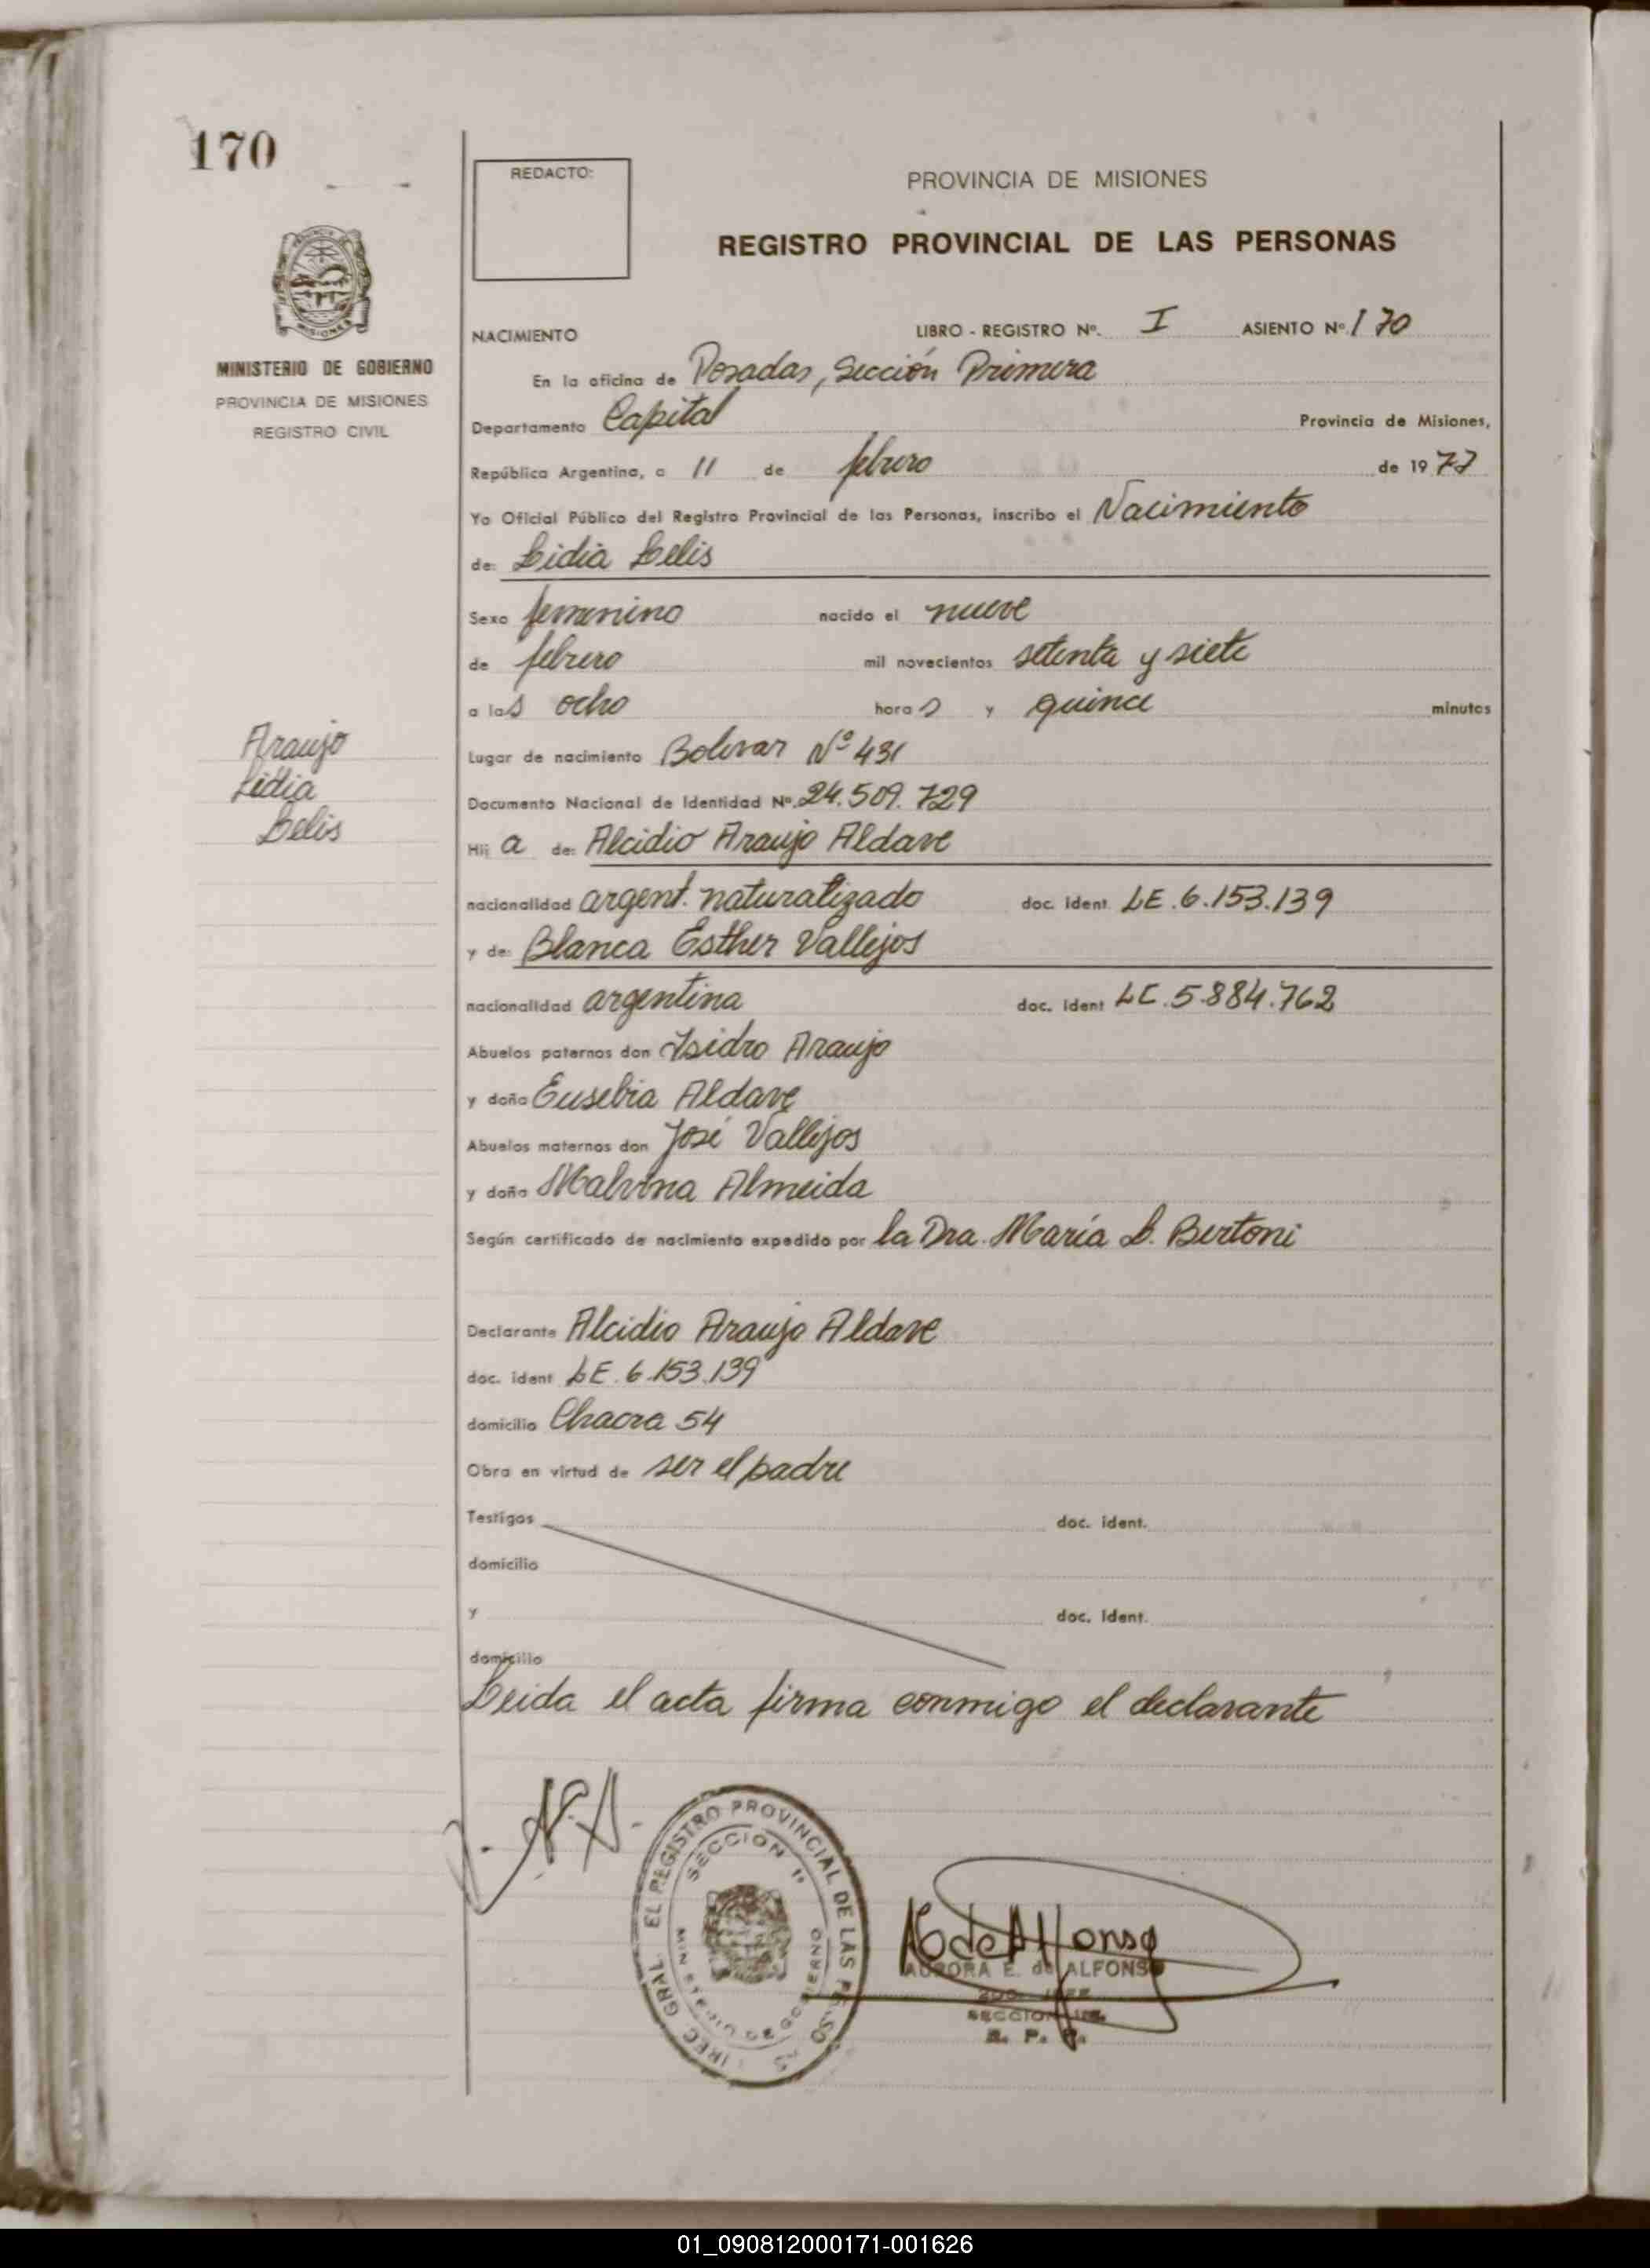 170
REDACTO:
PROVINCIA DE MISIONES
REGISTRO PROVINCIAL DE LAS PERSONAS
MISIONES
MINISTERIO DE GOBIERNO
PROVINCIA DE MISIONES
REGISTRO CIVIL
NACIMIENTO LIBRO - REGISTRO Nº. I ASIENTO Nº. 170
En la oficina de Posadas, Sección Primera
Departamento Capital Provincia de Misiones,
República Argentina, a 11 de febrero de 1977
Yo Oficial Público del Registro Provincial de las Personas, inscribo el Nacimiento
de: Lidia Lelis
Sexo femenino nacido el nueve
de febrero mil novecientos setenta y siete
a las ocho horas y quince minutos
Araujo
Lidia
Lelis
Lugar de nacimiento Bolivar Nº 431
Documento Nacional de Identidad Nº. 24.509.729
Hij a de: Alcidio Araujo Aldave
nacionalidad argent. naturalizado doc. ident. LE.6.153.139
y de: Blanca Esther Vallejos
nacionalidad argentina doc. ident LC.5.884.762
Abuelos paternos don Isidro Araujo
y doña Eusebia Aldave
Abuelos maternos don José Vallejos
y doña Malvina Almeida
Según certificado de nacimiento expedido por la Dra. María L. Bertoni
Declarante Alcidio Araujo Aldave
doc. ident LE.6.153.139
domicilio Chacra 54
Obra en virtud de ser el padre
Testigos doc. ident.
domicilio
y doc. ident.
domicilio
Leida el acta firma conmigo el declarante
EL REGISTRO PROVINCIAL DE LAS
SECCION 1ª
GRAL.
AEdeAlfonso
AURORA E. de ALFONSO
SECCION
R. P. P.
01_090812000171-001626